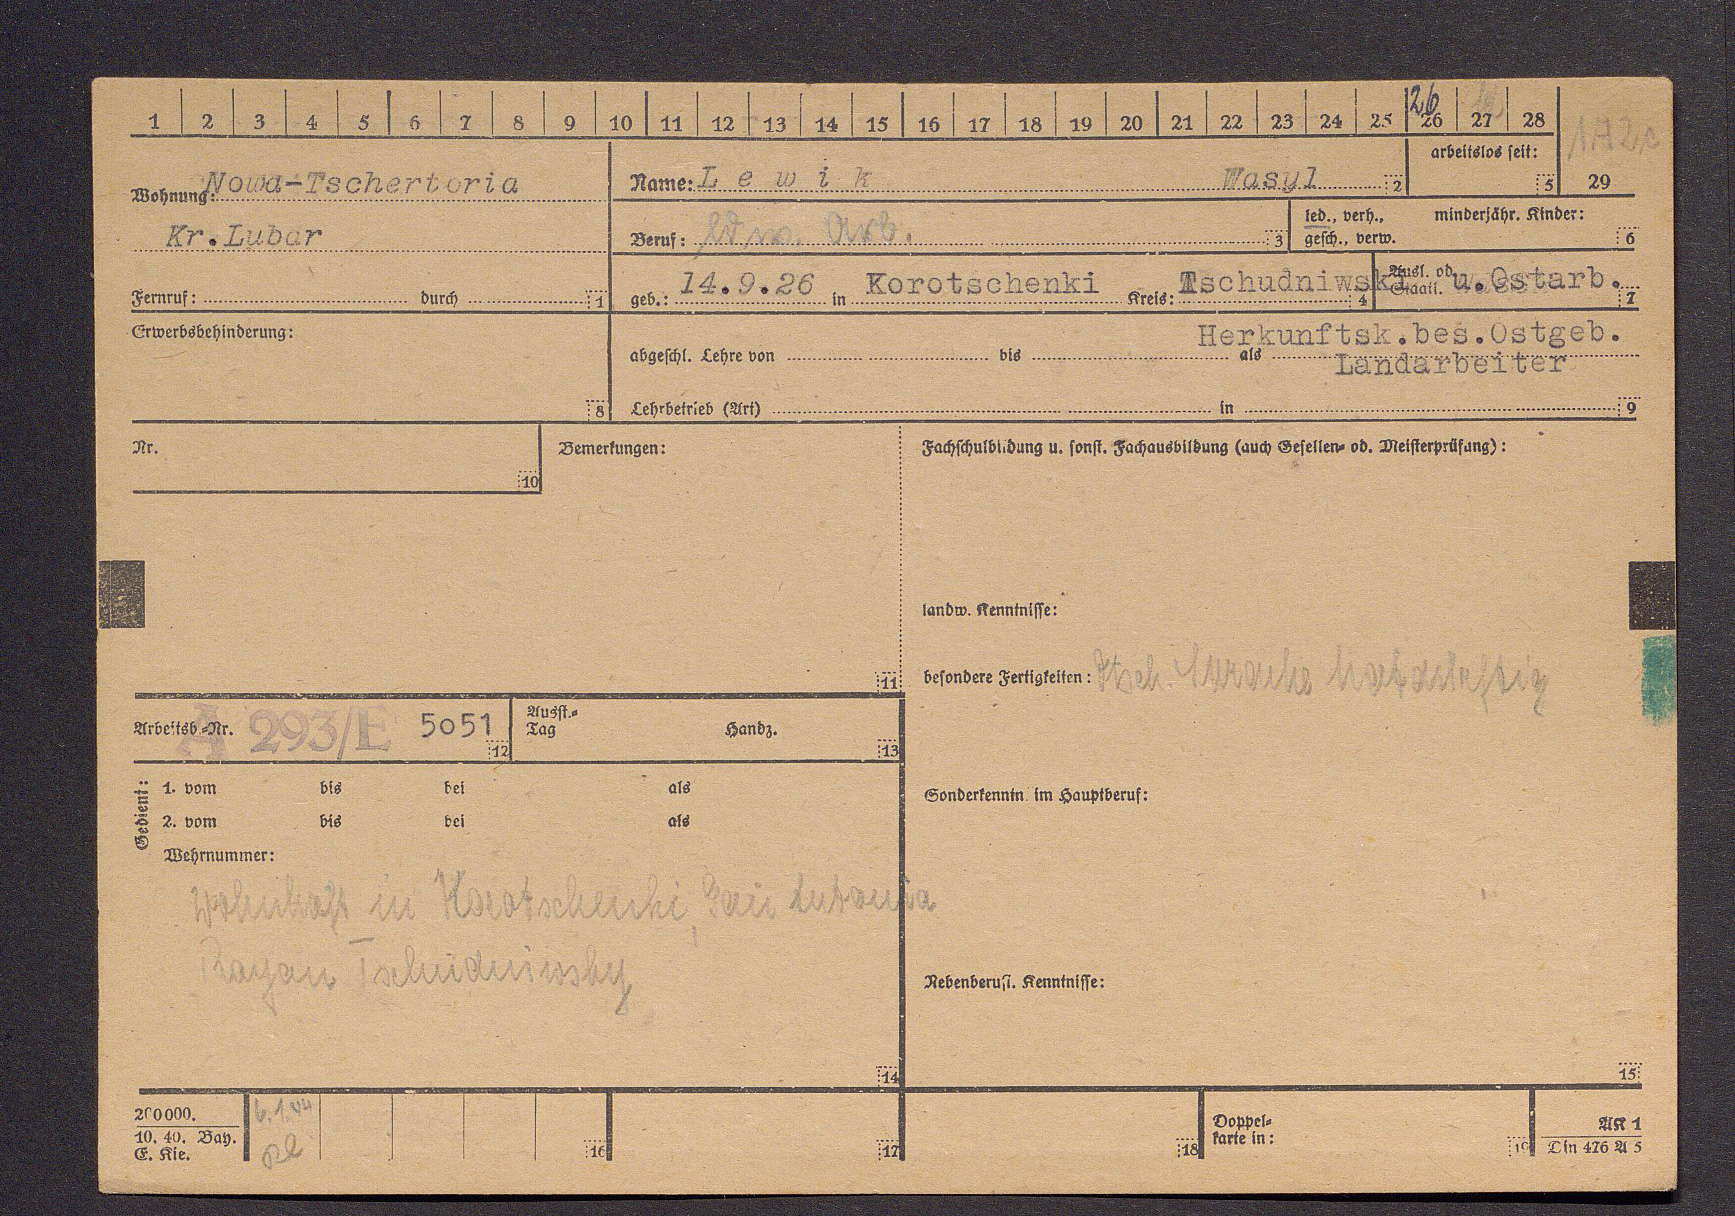 1 2 3 4 5 6 7 8 9 10 11 12 13 14 15 16 17 18 19 20 21 22 23 24 25 26 27 28
26
172c
arbeitslos seit:
5 29
Wohnung: Nowa-Tschertoria
Name: L e w i k Wasyl 2
Kr.Lubar
Beruf: ldw. Arb. 3
led., verh., minderjähr. Kinder:
gesch., verw. 6
Fernruf: durch 1
geb.: 14.9.26 in Korotschenki Kreis: Tschudniwski 4
Ausl. od. u.Ostarb.
Staatl. 7
Erwerbsbehinderung:
8
Herkunftsk.bes.Ostgeb.
abgeschl. Lehre von bis als
Landarbeiter
Lehrbetrieb (Art) in 9
Nr.
10
Bemerkungen:
11
Fachschulbildung u. sonst. Fachausbildung (auch Gesellen- od. Meisterprüfung):
landw. Kenntnisse:
besondere Fertigkeiten: dtsch. Sprache
Arbeitsb.-Nr. A 293/E 5051
12
Ausst.-
Tag Handz.
13
Gedient:
1. vom bis bei als
2. vom bis bei als
Wehrnummer:
wohnhaft in Korotschenki,
Rayon Tschudniwsky
14
Sonderkenntn. im Hauptberuf:
Nebenberufl. Kenntnisse:
15
200000.
10. 40. Bay.
E. Kie.
6.1.44
16 17 18
Doppel-
karte in:
19
AK 1
Din 476 A 5